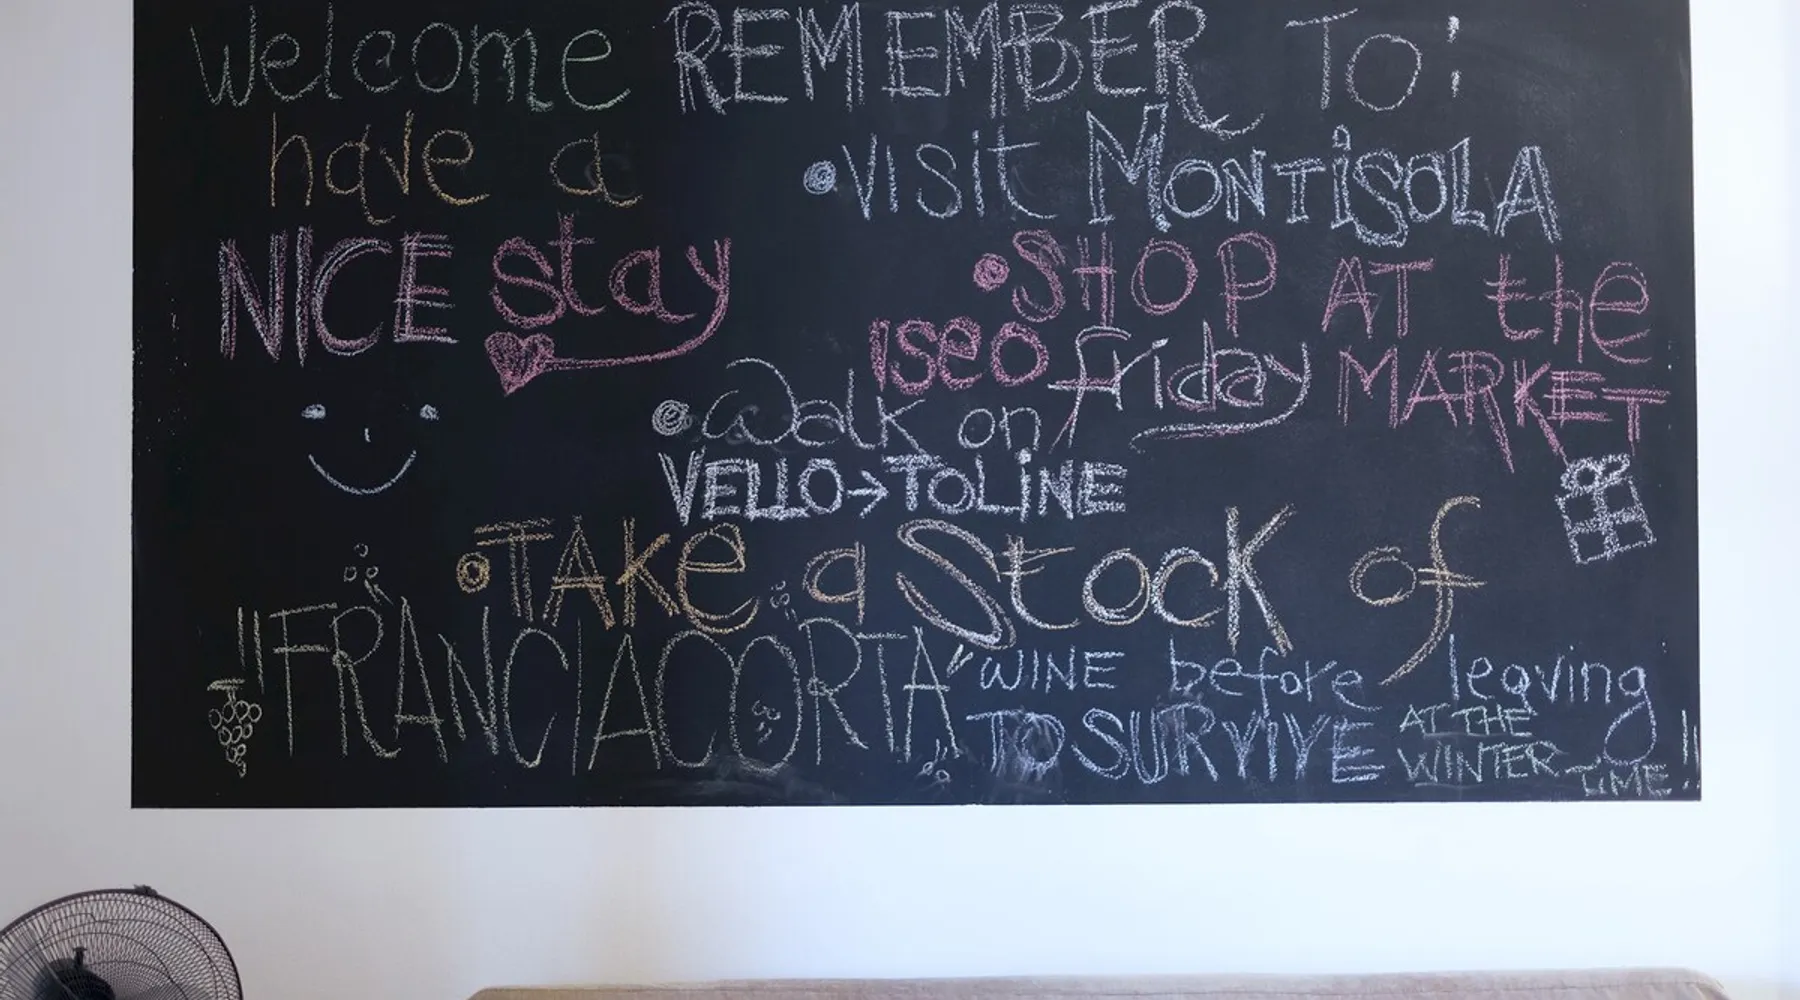 Welcome
have a
NICE stay
REMEMBER TO:
•VISit MONTiSOLA
•SHOP AT the
ISEO friday MARKET
•Walk on
VELLO→TOLiNE
•TAKe a StocK of
"FRANCIACORTA" WINE before leaving
TO SURVIVE AT THE
WINTER TIME!!